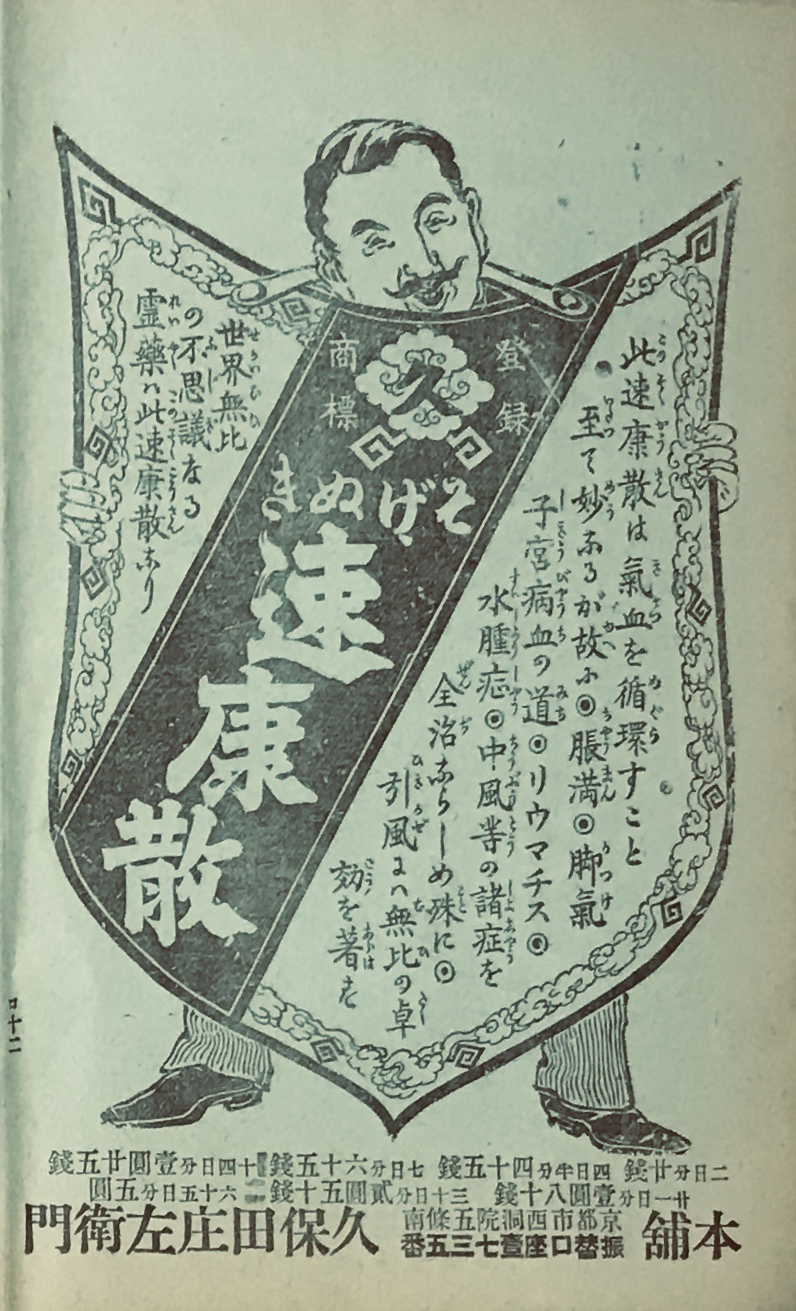 登録
商標
久
そげぬき
速康散
此速康散は氣血を循環すこと
至て妙なるが故に◉脹満◉脚氣
子宮病血の道◉リウマチス◉
水腫症◉中風等の諸症を
全治ならしめ殊に◉
引風には無比の卓
効を著す
世界無比
の不思議なる
霊藥ハ此速康散なり
二日分廿錢 四日半分四十五錢 七日分六十五錢 十四日分壹圓廿五錢
廿一日分壹圓八十錢 三十日分貳圓五十錢 六十五日分五圓
本舖 京都市西洞院五條南 久保田庄左衛門
振替口座壹七三五番
ロ十二